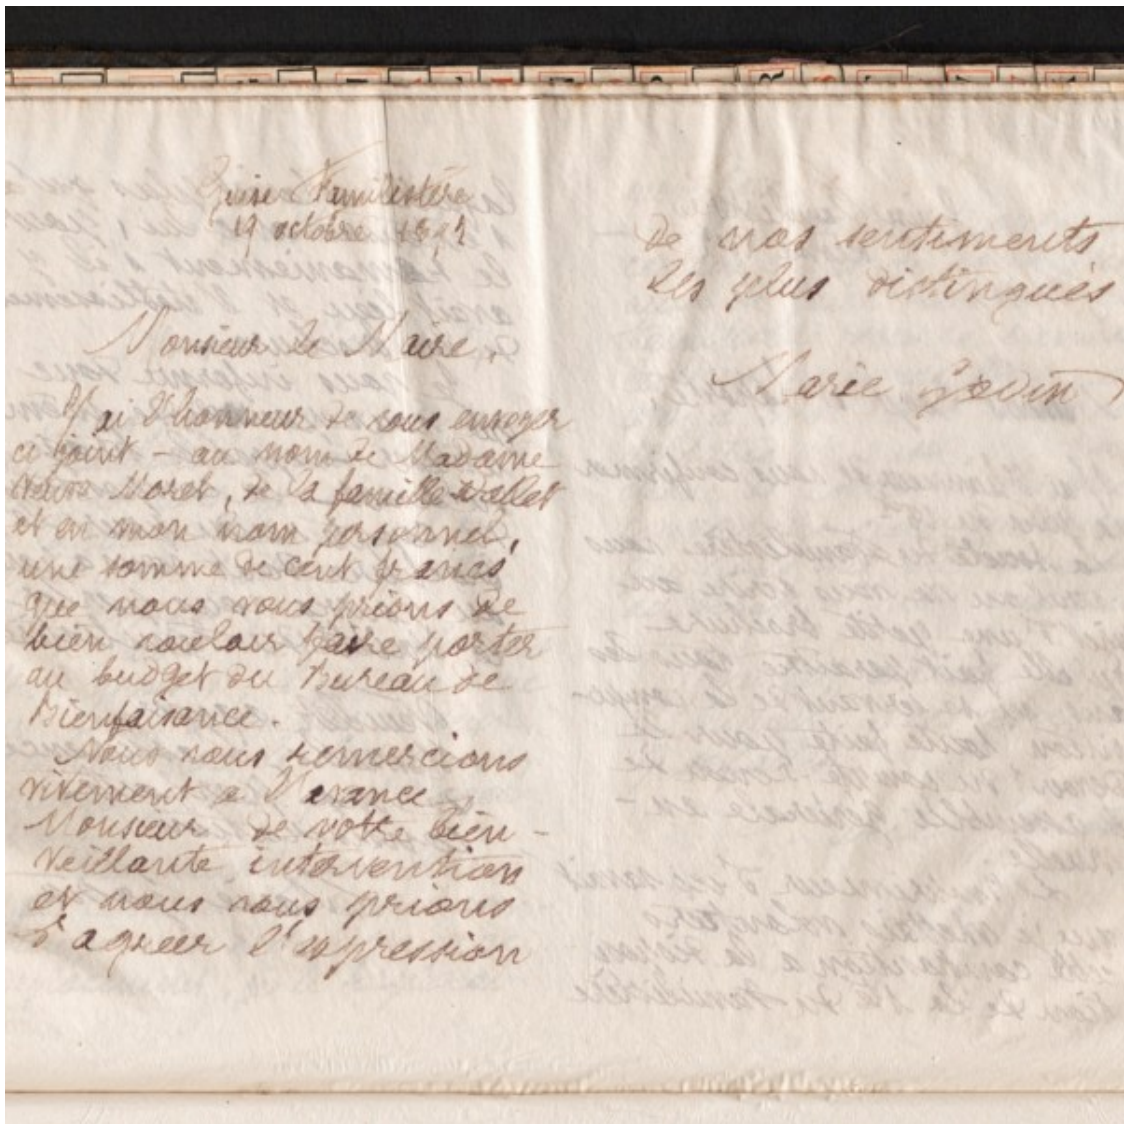 Guise Familistère
19 octobre 1891
Monsieur le Maire,
J'ai l'honneur de vous envoyer
ci joint - au nom de Madame
veuve Moret, de la famille Dallet
et en mon nom personnel,
une somme de cent francs
que nous vous prions de
bien vouloir faire porter
au budget du Bureau de
Bienfaisance.
Nous vous remercions
vivement à l'avance
Monsieur de votre bien-
veillante intervention
et nous vous prions
d'agréer l'expression
de nos sentiments
les plus distingués
Marie Godin